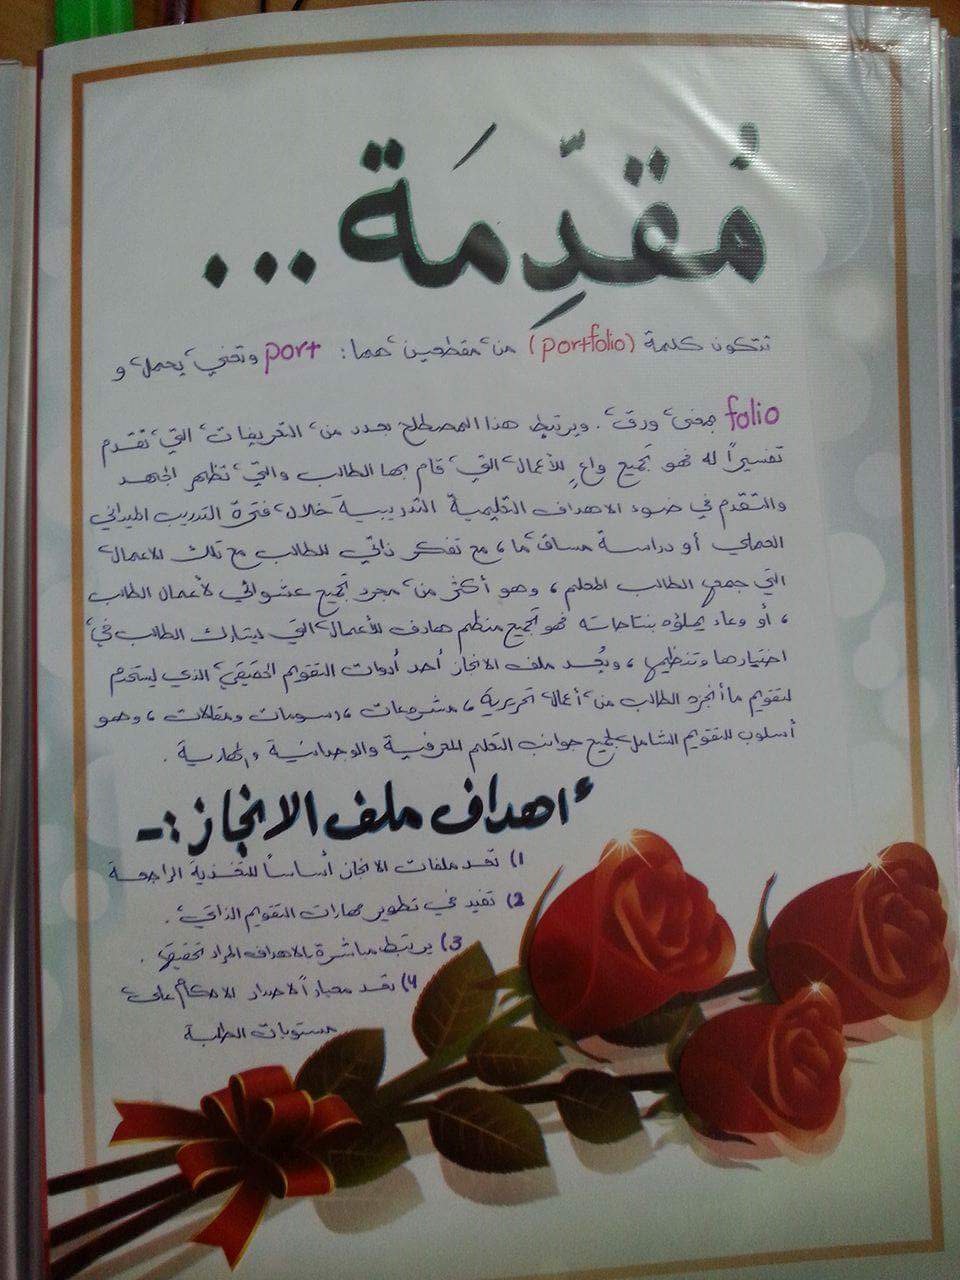 مُقدِّمَة...
تتكون كلمة (portfolio) من مقطعين هما: port وتعني يحمل و
folio بمعنى ورق. ويرتبط هذا المصطلح بعدد من التعريفات التي تقدم
تفسيراً له فهو تجميع واعٍ للأعمال التي قام بها الطالب والتي تظهر الجهد
والتقدم في ضوء الاهداف التعليمية التدريبية خلال فترة التدريب الميداني
العملي أو دراسة مساق ما، مع تفكر ذاتي للطالب مع تلك الاعمال
التي جمعها الطالب المعلم، وهو أكثر من مجرد تجميع عشوائي لأعمال الطالب
، أو وعاء يملؤه بنتاجاته فهو تجميع منظم هادف للأعمال التي يشارك الطالب في
اختيارها وتنظيمها، ويُعد ملف الانجاز أحد أدوات التقويم الحقيقي الذي يستخدم
لتقويم ما أنجزه الطالب من أعمال تحريرية، مشروعات، رسومات ومقالات، وهو
أسلوب للتقويم الشامل لجميع جوانب التعلم المعرفية والوجدانية والمهارية.
أهداف ملف الانجاز:-
1) تعد ملفات الانجاز أساساً للتغذية الراجعة
2) تفيد في تطوير مهارات التقويم الذاتي.
3) يرتبط مباشرة بالاهداف المراد تحقيقها.
4) تعد معياراً لاصدار الاحكام على
مستويات الطلبة